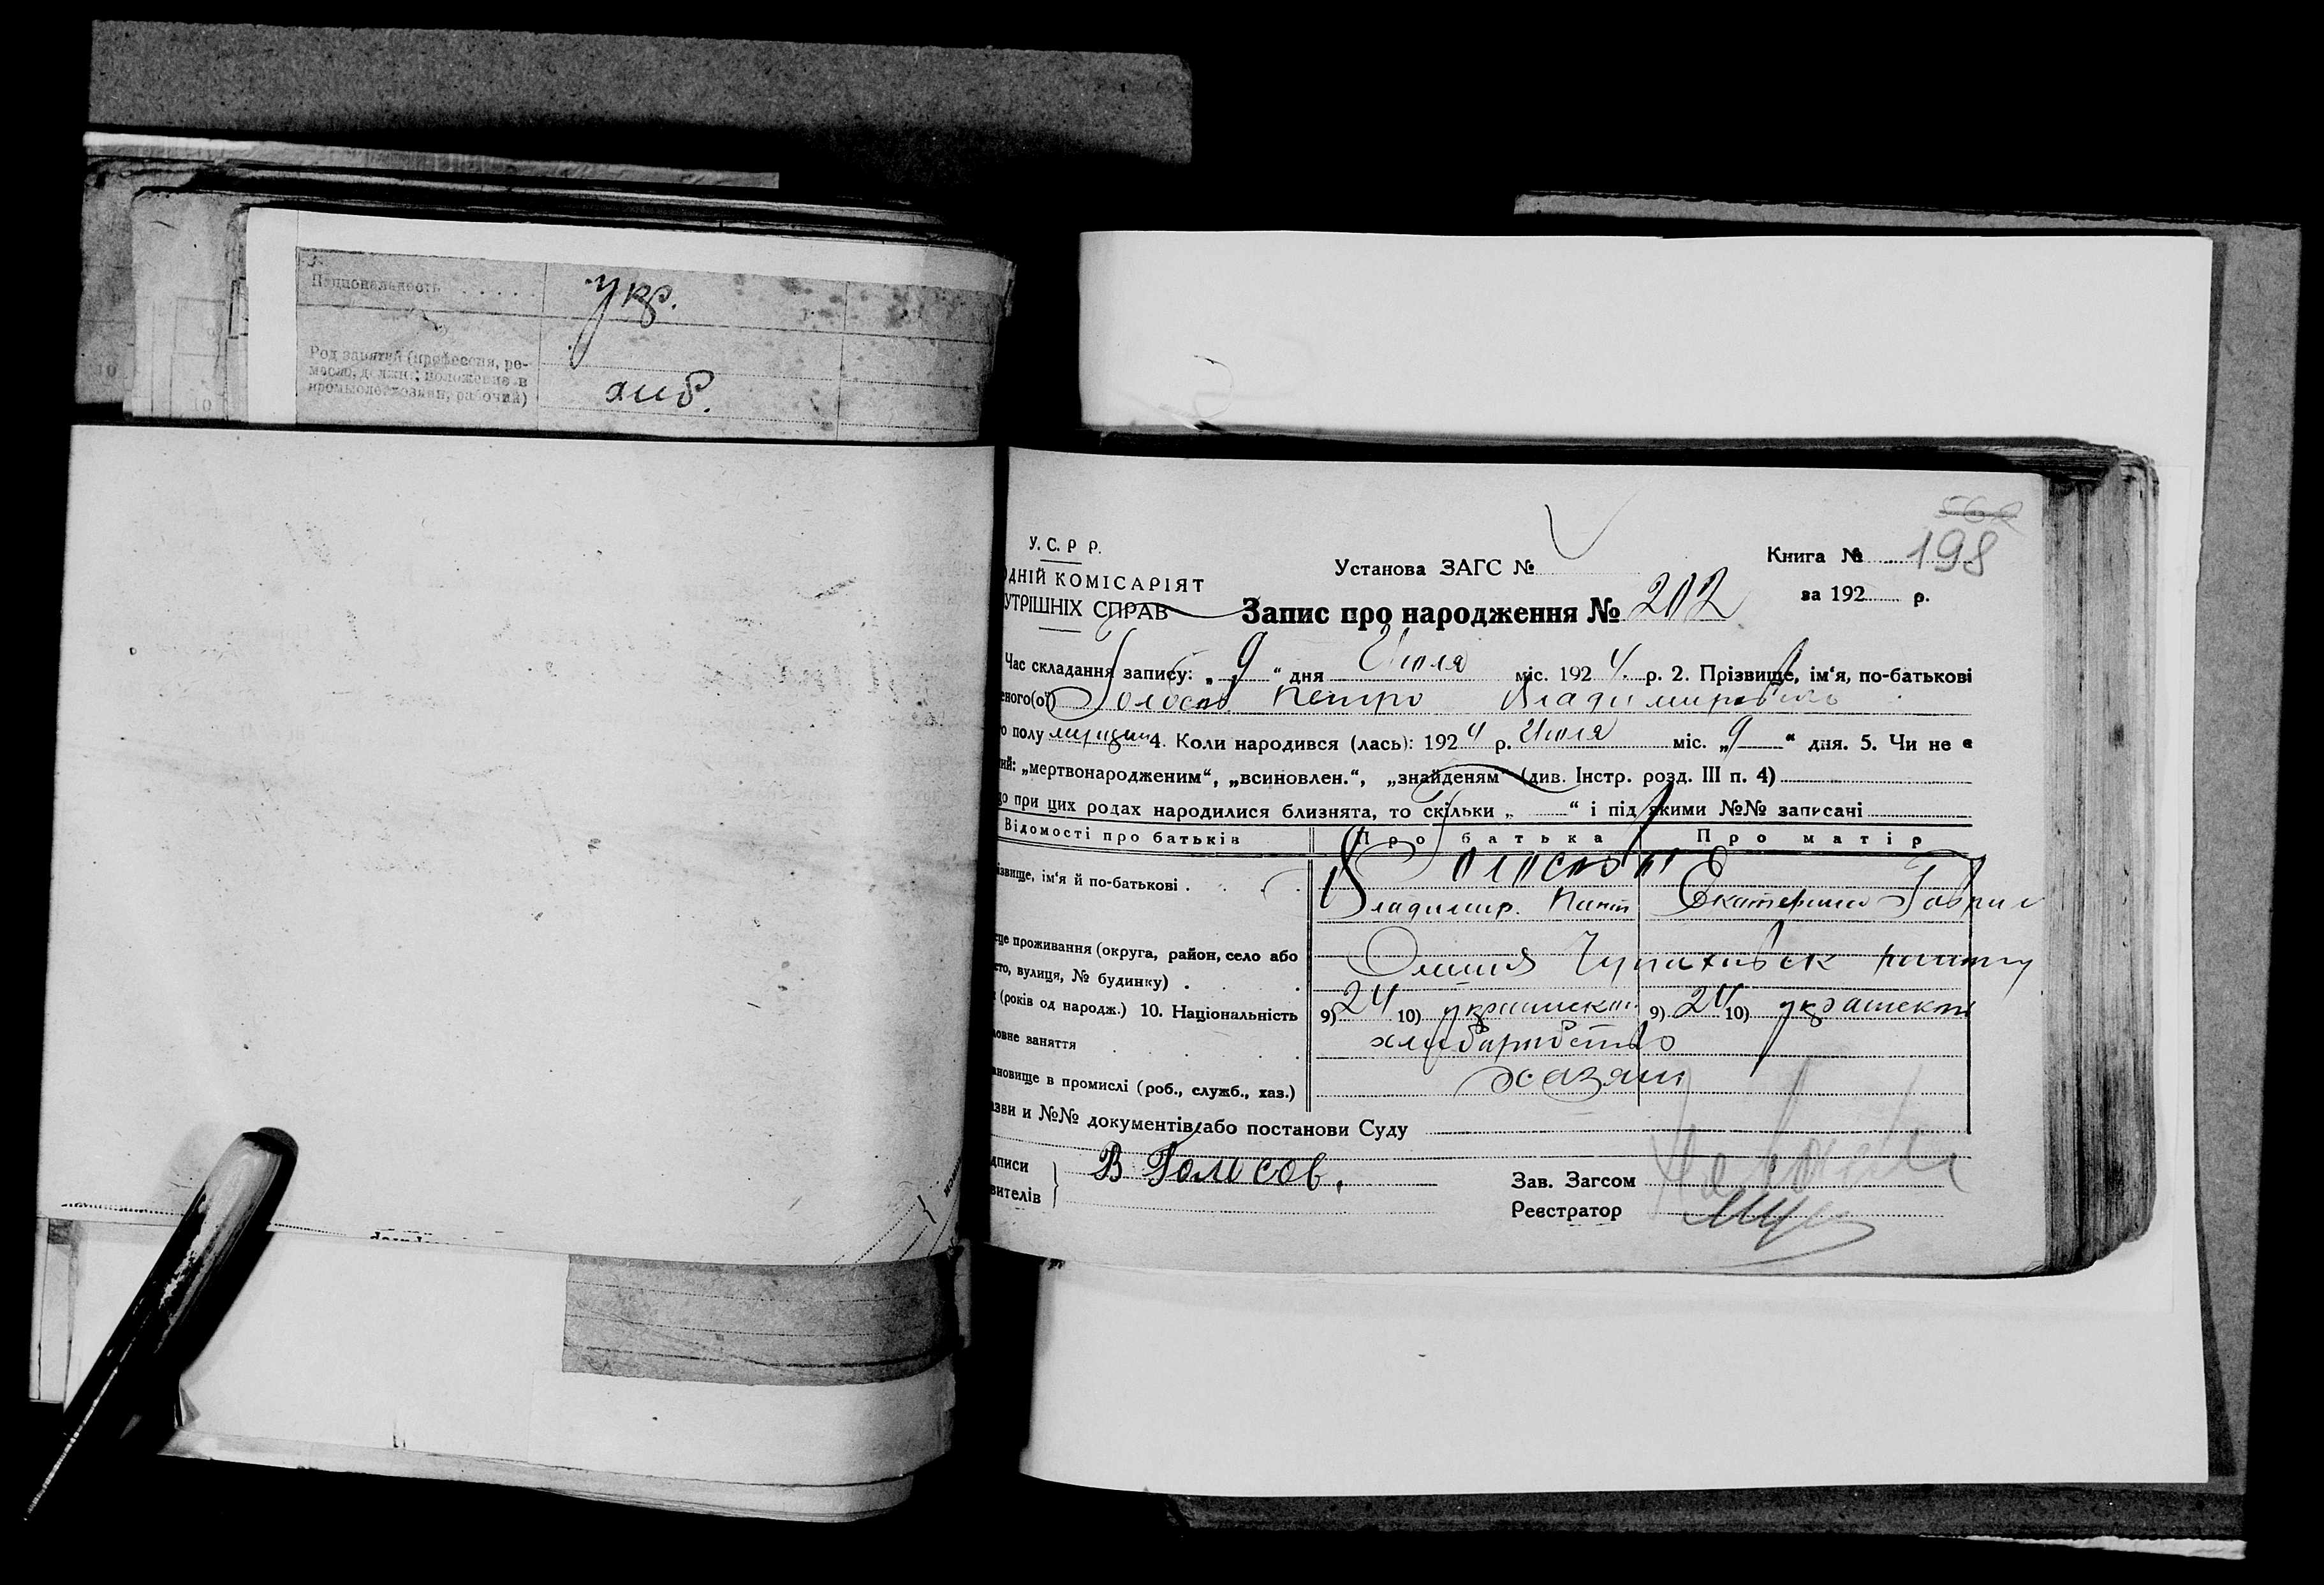 Национальность
укр.
Род занятий (профессия, ре-
месло, должн.; положение в
промысле: хозяин, рабочий)
хлиб.
10
10
У. С. Р Р.
ОДНІЙ КОМІСАРІЯТ
УТРІШНІХ СПРАВ
Установа ЗАГС №
Книга № 198
за 192 р.
Запис про народження № 202
Час складання запису: „ 9 “ дня Июля міс. 192 4 р. 2. Прізвище, ім‘я, по-батькові
еного(ої) Голосов Петро Владимирович
о полу мущин 4. Коли народився (лась): 192 4 р. Июля міс. „ 9 “ дня. 5. Чи не є
ий: „мертвонародженим“, „всиновлен.“, „знайденям“ (див. Інстр. розд. III п. 4)
що при цих родах народилися близнята, то скільки „ “ і під якими №№ записані
Відомості про батьків Про батька Про матір
ізвище, ім‘я й по-батькові Голосовы
Владимир. Екатерина Гаврил
сце проживання (округа, район, село або
сто, вулиця, № будинку)
(років од народж.) 10. Національність 9) 24 10) украинска 9) 24 10) украинска
ловне заняття хлиборобство
ановище в промислі (роб., служб., хаз.) хазяин
азви и №№ документів або постанови Суду
дписи
вителів
В Голосов.
Зав. Загсом
Реєстратор